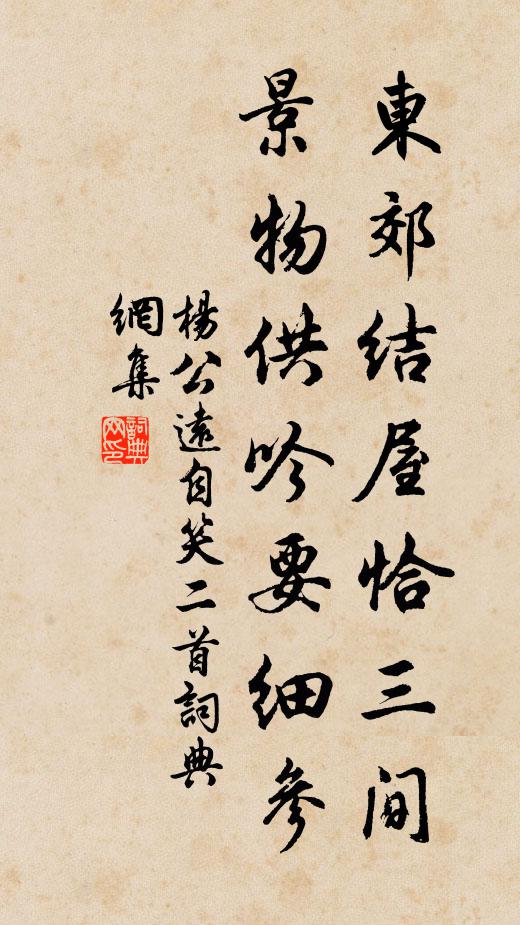 東郊結屋恰三間
景物供吟要細參
楊公遠自笑二首詞典
網集
詞典
网印